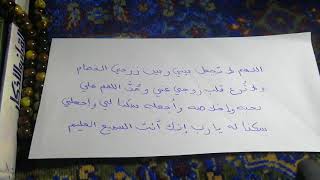 اللهم لا تجعل بيني وبين زوجي الخصام
ولا تُزغ قلب زوجي عني و اللهم علي
نعمة وإخلاصه وأجعله سكنا لي واجعلني
سكنا له يا رب إنك أنت السميع العليم